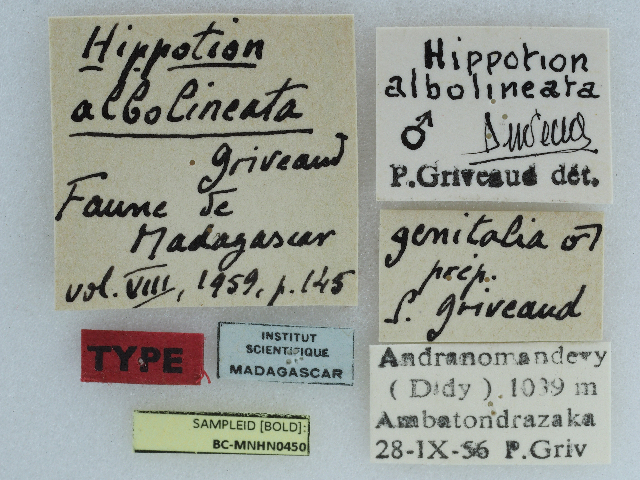 Hippotion
albolineata
Griveaud
Faune de
Madagascar
vol. VIII, 1959, p. 145
Hippotion
albolineata
♂
P. Griveaud dét.
genitalia ♂
prép.
P. Griveaud
TYPE
INSTITUT
SCIENTIFIQUE
MADAGASCAR
Andranomandevy
( Didy ) 1039 m
Ambatondrazaka
28-IX-56 P. Griv
SAMPLEID [BOLD]:
BC-MNHN0450